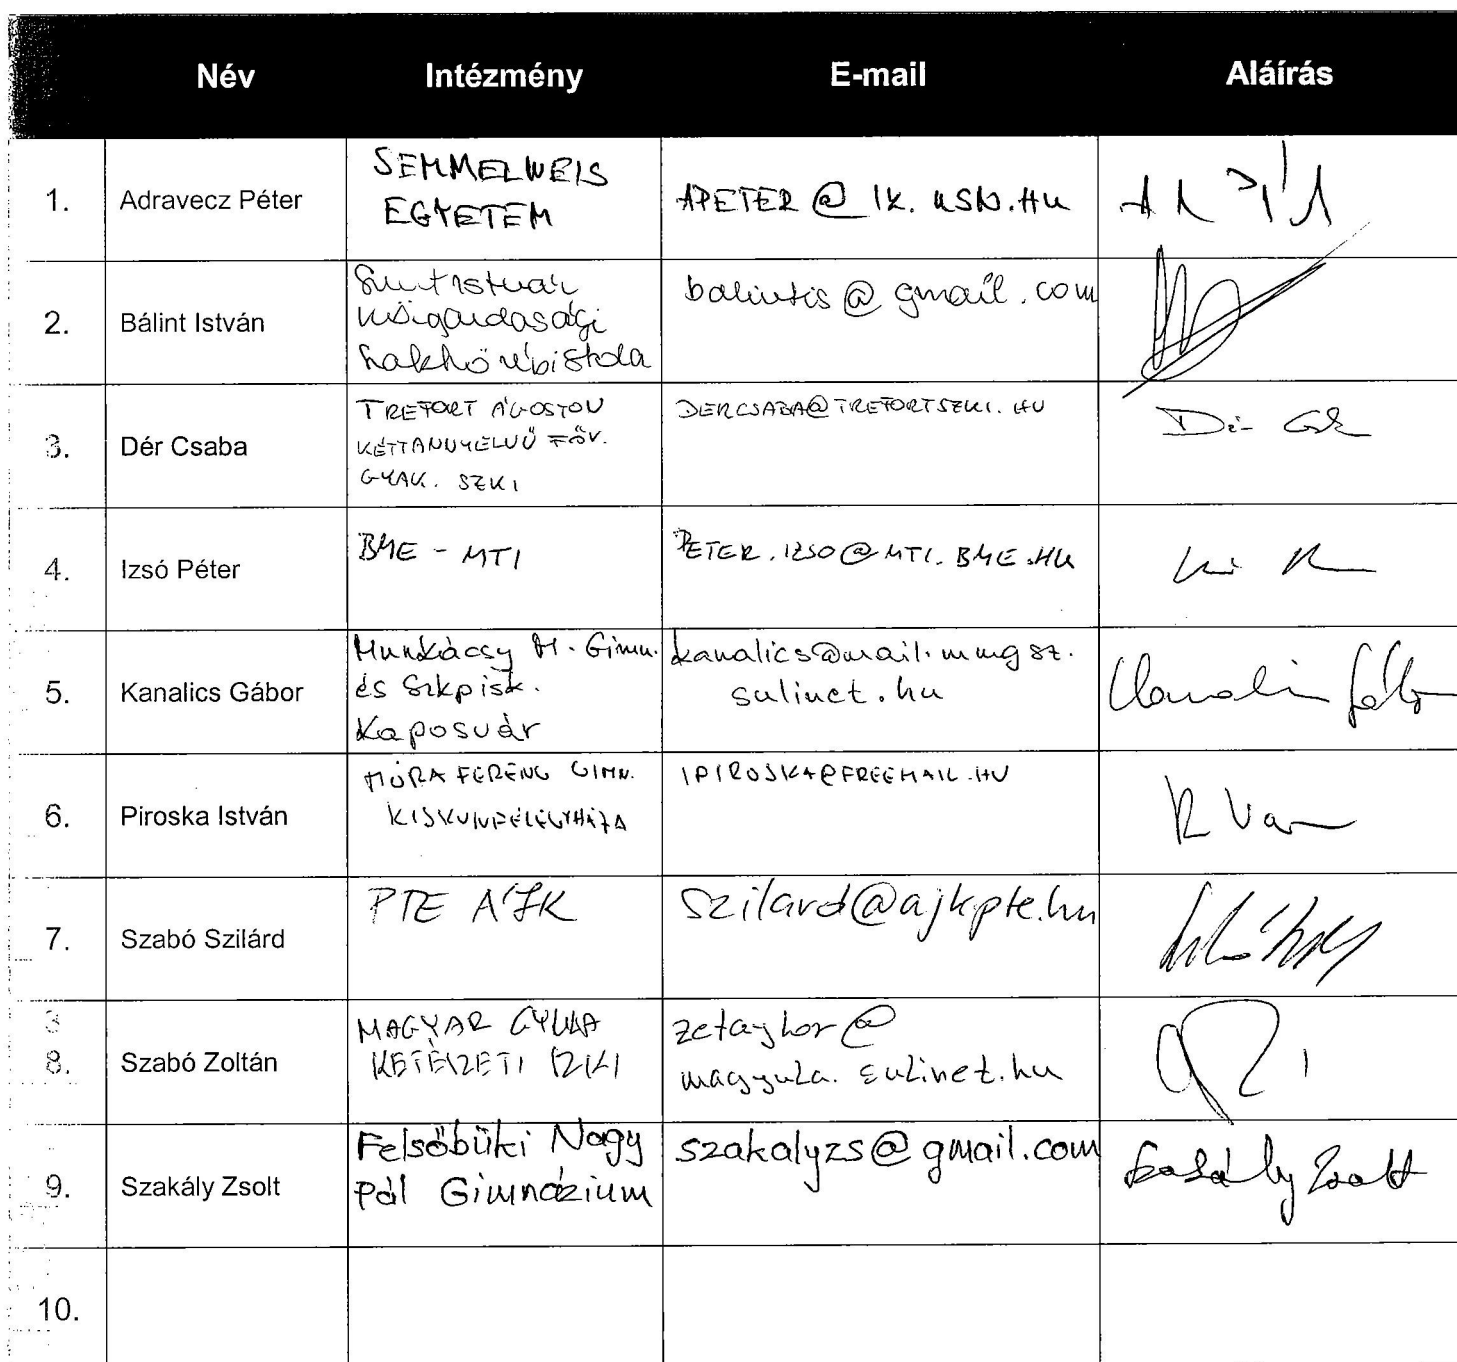 Név Intézmény E-mail Aláírás
1. Adravecz Péter SEMMELWEIS EGYETEM APETER@IK.USN.HU
2. Bálint István Szent István közgazdasági szakközépiskola balintis@gmail.com
3. Dér Csaba TREFORT ÁGOSTON KÉTTANNYELVŰ FŐV. GYAK. SZKI DERCSABA@TREFORTSZKI.HU
4. Izsó Péter BME - MTI PETER.IZSO@MTI.BME.HU
5. Kanalics Gábor Munkácsy M. Gimn. és Szkpisk. Kaposvár kanalics@mail.mmgsz.sulinet.hu Kanalics Gábor
6. Piroska István MÓRA FERENC GIMN. KISKUNFÉLEGYHÁZA IPIROSKA@FREEMAIL.HU
7. Szabó Szilárd PTE ÁJK szilard@ajkpte.hu
8. Szabó Zoltán MAGYAR GYULA KERTÉSZETI SZKI zetaylor@magyula.sulinet.hu
9. Szakály Zsolt Felsőbüki Nagy Pál Gimnázium szakalyzs@gmail.com Szakály Zsolt
10.